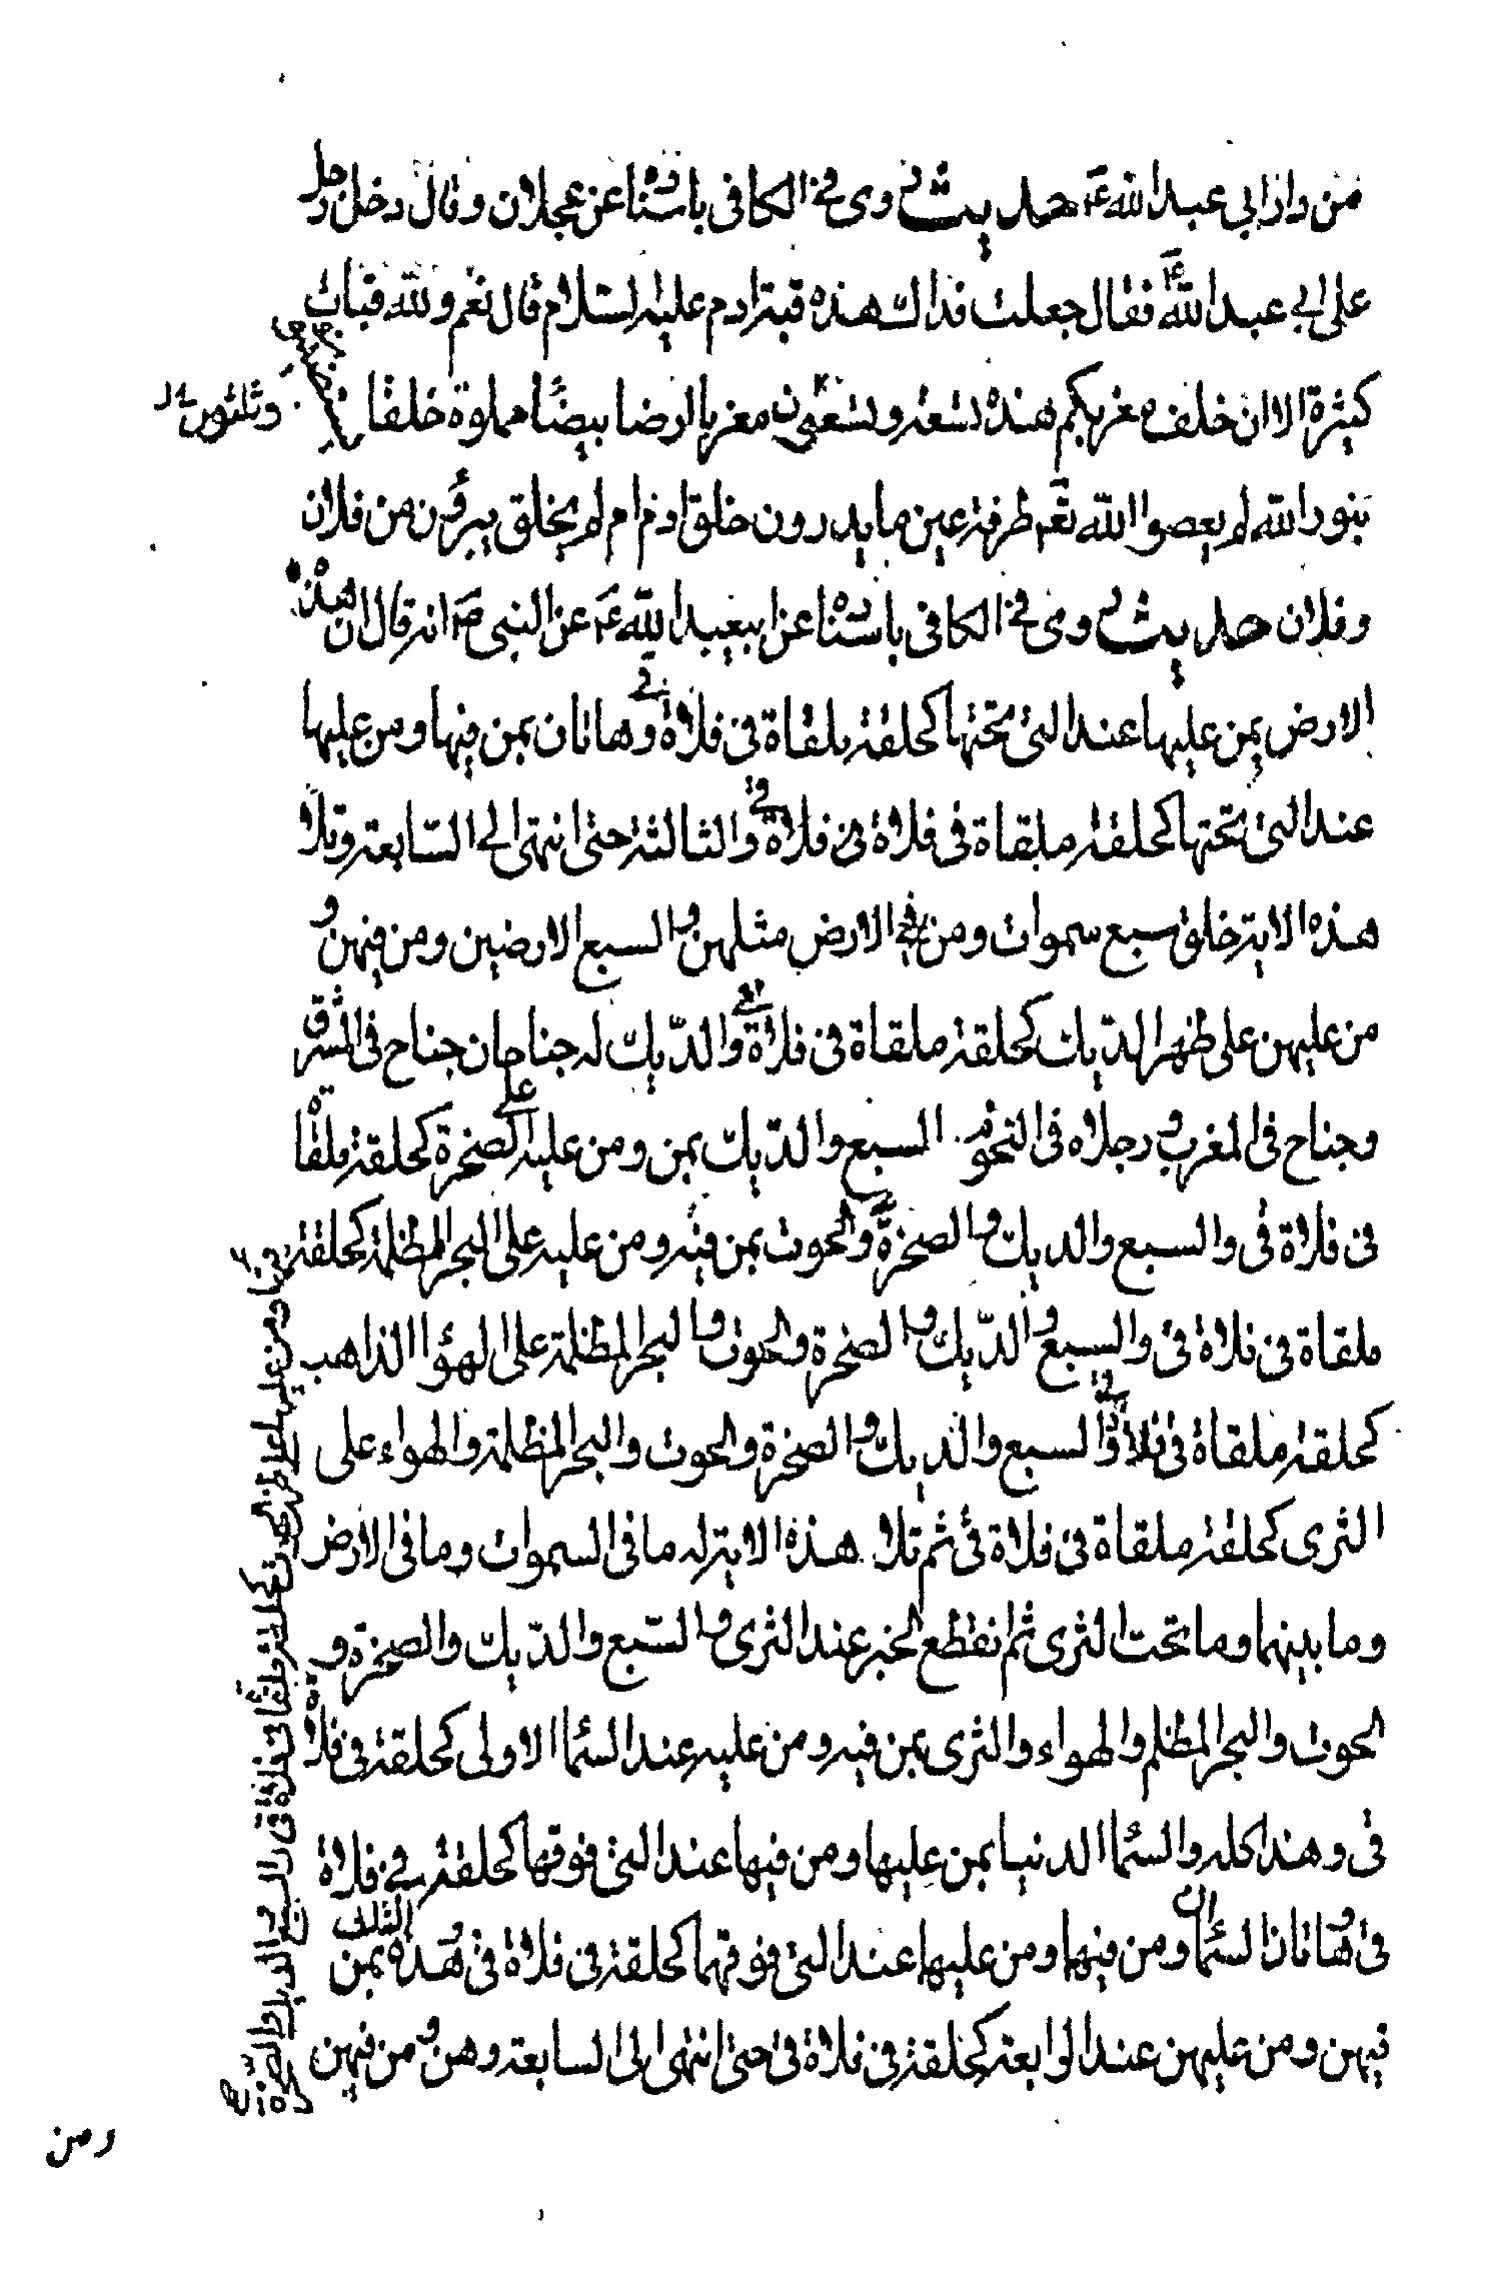 من دار ابي عبد الله ع حديث روى في الكافي باسناده عن عجلان وقال دخل رجل
على ابي عبد الله ع فقال جعلت فداك هذه قبة ادم عليه السلام قال نعم ولله قباب
كثيرة الا ان خلف مغربكم هذه تسعة وتسعون مغربا ارضا بيضا مملوة خلقا
وثلثون
بنور الله لم يعصوا الله تعم طرفة عين ما يدرون خلق ادم ام لم يخلق يبرؤن من فلان
وفلان حديث روى في الكافي باسناده عن ابيعبد الله ع عن النبي ص انه قال ان هذه
الارض بمن عليها عند التى تحتها كحلقة ملقاة فى فلاة فى وهاتان بمن فيها ومن عليها
عند التى تحتها كحلقة ملقاة فى فلاة فى فلاة فى والثالثة حتى انتهى الى السابعة وتلا
هذه الاية خلق سبع سموات ومن فى الارض مثلهن والسبع الارضين ومن فيهن و
من عليهن على ظهر الديك كحلقة ملقاة فى فلاة فى والديك له جناحان جناح فى المشرق
وجناح فى المغرب ورجلاه فى التخوم السبع والديك بمن ومن عليه على الصخرة كحلقة ملقاة
فى فلاة فى والسبع والديك والصخرة والحوت بمن فيه ومن عليه على البحر المظلمة كحلقة
ملقاة فى فلاة فى والسبع والديك والصخرة والحوت والبحر المظلمة على الهوا الذاهب
كحلقة ملقاة فى فلاة فى والسبع والديك والصخرة والحوت والبحر المظلمة والهواء على
الثرى كحلقة ملقاة فى فلاة فى ثم تلا هذه الاية له ما فى السموات وما فى الارض
وما بينهما وما تحت الثرى ثم انقطع الخبر عند الثرى والسبع والديك والصخرة و
الحوت والبحر المظلم والهواء والثرى بمن فيه ومن عليه عند السما الاولى كحلقة فى فلاة
فى وهذا كله والسما الدنيا بمن عليها ومن فيها عند التى فوقها كحلقة فى فلاة
فى وهاتان السماان ومن فيها ومن عليها عند التى فوقهما كحلقة فى فلاة فى وهذه الثلث بمن
فيهن ومن عليهن عند الرابعة كحلقة فى فلاة فى حتى انتهى الى السابعة وهن ومن فيهن
ومن
فيها ومن عليها على ظهر الحوت كحلقة ملقاة فى فلاة فى والسبع والديك والصخرة